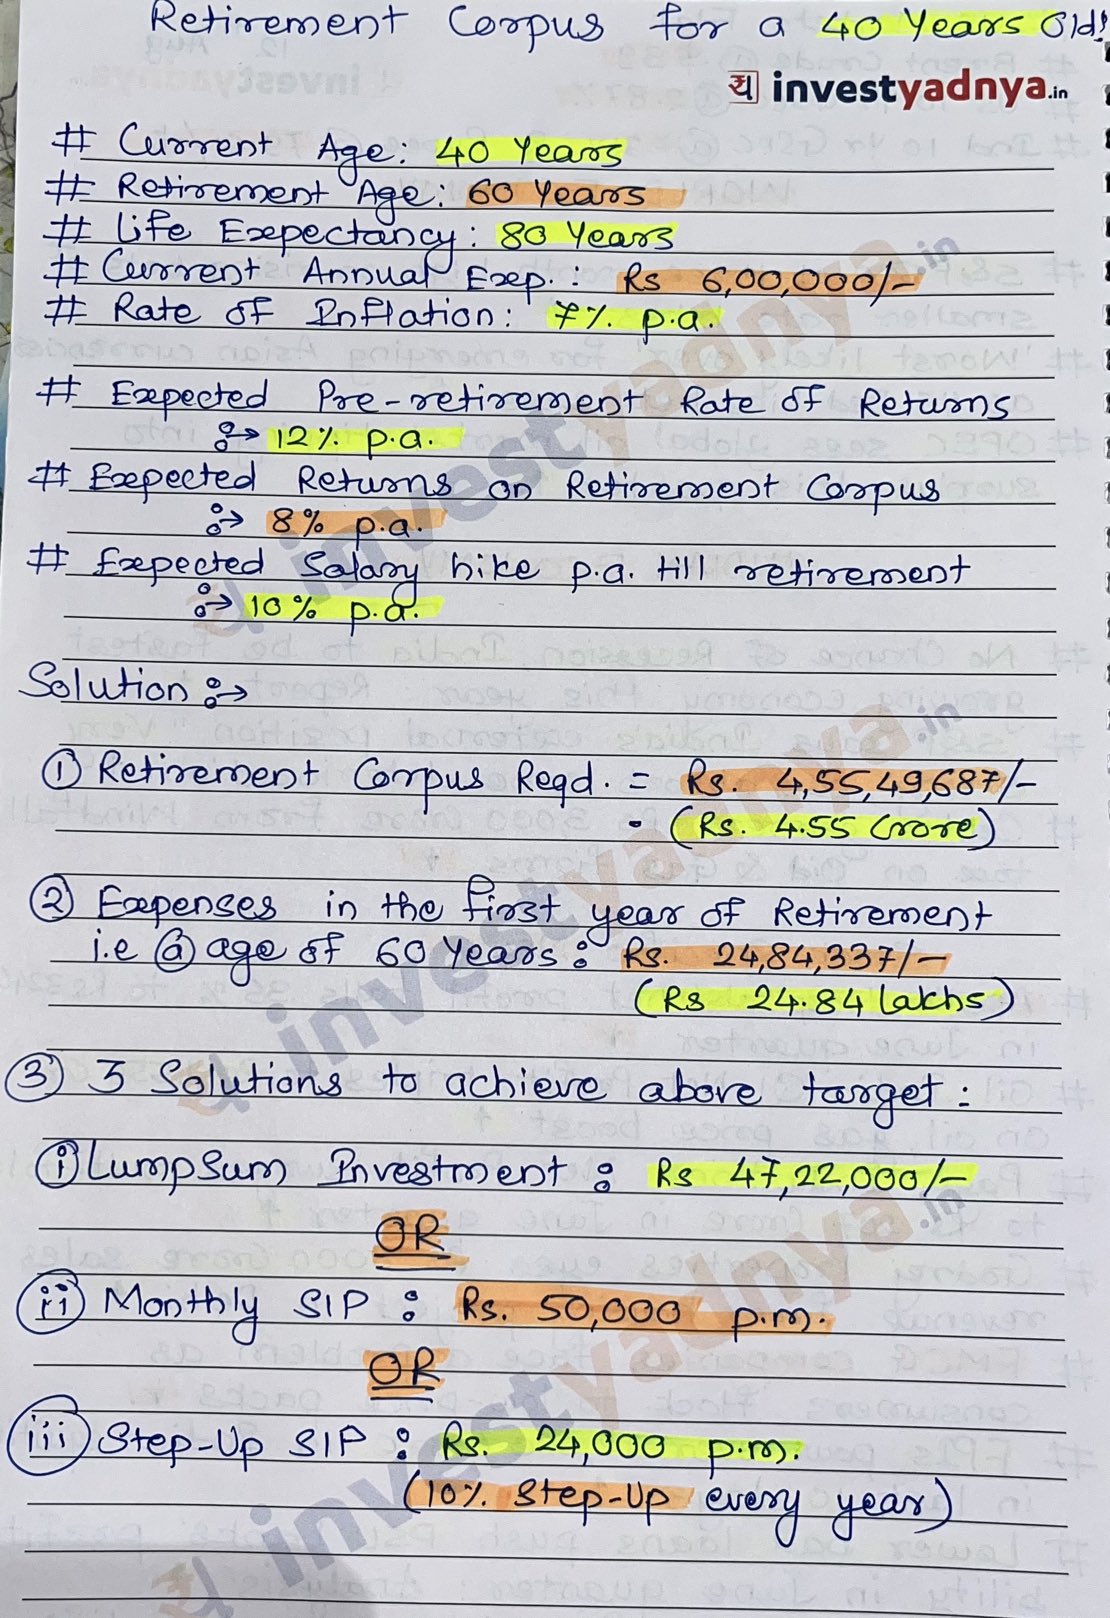 Retirement Corpus for a 40 Years Old!
य investyadnya.in
# Current Age: 40 Years
# Retirement Age: 60 Years
# Life Expectancy: 80 Years
# Current Annual Exp.: Rs 6,00,000/-
# Rate of Inflation: 7% p.a.
# Expected Pre-retirement Rate of Returns
→ 12% p.a.
# Expected Returns on Retirement Corpus
→ 8% p.a.
# Expected Salary hike p.a. till retirement
→ 10% p.a.
Solution →
① Retirement Corpus Reqd. = Rs. 4,55,49,687/-
- (Rs. 4.55 Crore)
② Expenses in the first year of Retirement
i.e @ age of 60 years: Rs. 24,84,337/-
(Rs 24.84 lakhs)
③ 3 Solutions to achieve above target:
(i) Lumpsum Investment: Rs 47,22,000/-
OR
(ii) Monthly SIP: Rs. 50,000 p.m.
OR
(iii) Step-Up SIP: Rs. 24,000 p.m.
(10% Step-Up every year)
investyadnya.in
investyadnya.in
investyadnya.in